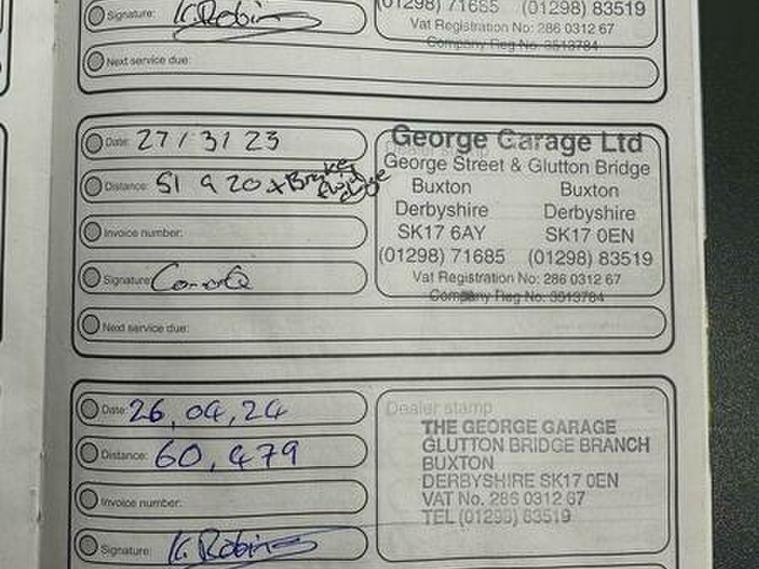 Signature: K. Robins
(01298) 71685 (01298) 83519
Vat Registration No: 286 0312 67
Company Reg No: 3513784
Next service due:
Date: 27 / 3 / 23
Distance: 51 920 + Brake fluid change
Invoice number:
Signature:
Next service due:
George Garage Ltd
George Street & Glutton Bridge
Buxton Buxton
Derbyshire Derbyshire
SK17 6AY SK17 0EN
(01298) 71685 (01298) 83519
Vat Registration No: 286 0312 67
Company Reg No: 3513784
Date: 26,04,24
Distance: 60,479
Invoice number:
Signature: K. Robins
Dealer stamp
THE GEORGE GARAGE
GLUTTON BRIDGE BRANCH
BUXTON
DERBYSHIRE SK17 0EN
VAT No. 286 0312 67
TEL (01298) 83519